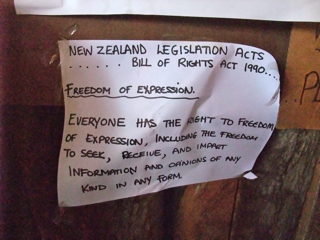 NEW ZEALAND LEGISLATION ACTS
...... BILL OF RIGHTS ACT 1990....
FREEDOM OF EXPRESSION.
EVERYONE HAS THE RIGHT TO FREEDOM
OF EXPRESSION, INCLUDING THE FREEDOM
TO SEEK, RECEIVE, AND IMPART
INFORMATION AND OPINIONS OF ANY
KIND IN ANY FORM